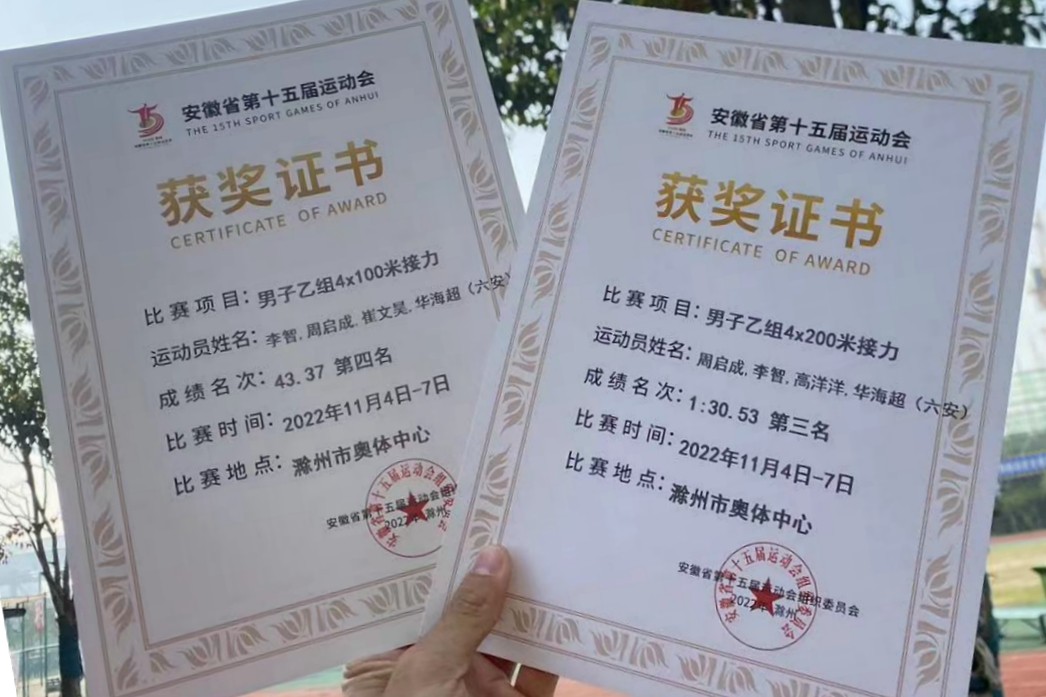 安徽省第十五届运动会
THE 15TH SPORT GAMES OF ANHUI
获奖证书
CERTIFICATE OF AWARD
比赛项目：男子乙组4x100米接力
运动员姓名：李智,周启成,崔文昊,华海超（六安）
成绩名次：43.37 第四名
比赛时间：2022年11月4日-7日
比赛地点：滁州市奥体中心
安徽省第十五届运动会组织
2022年 滁州
安徽省第十五届运动会组委会
安徽省第十五届运动会
THE 15TH SPORT GAMES OF ANHUI
获奖证书
CERTIFICATE OF AWARD
比赛项目：男子乙组4x200米接力
运动员姓名：周启成,李智,高洋洋,华海超（六安）
成绩名次：1:30.53 第三名
比赛时间：2022年11月4日-7日
比赛地点：滁州市奥体中心
安徽省第十五届运动会组织委员会
2022年 滁州
安徽省第十五届运动会组织委员会